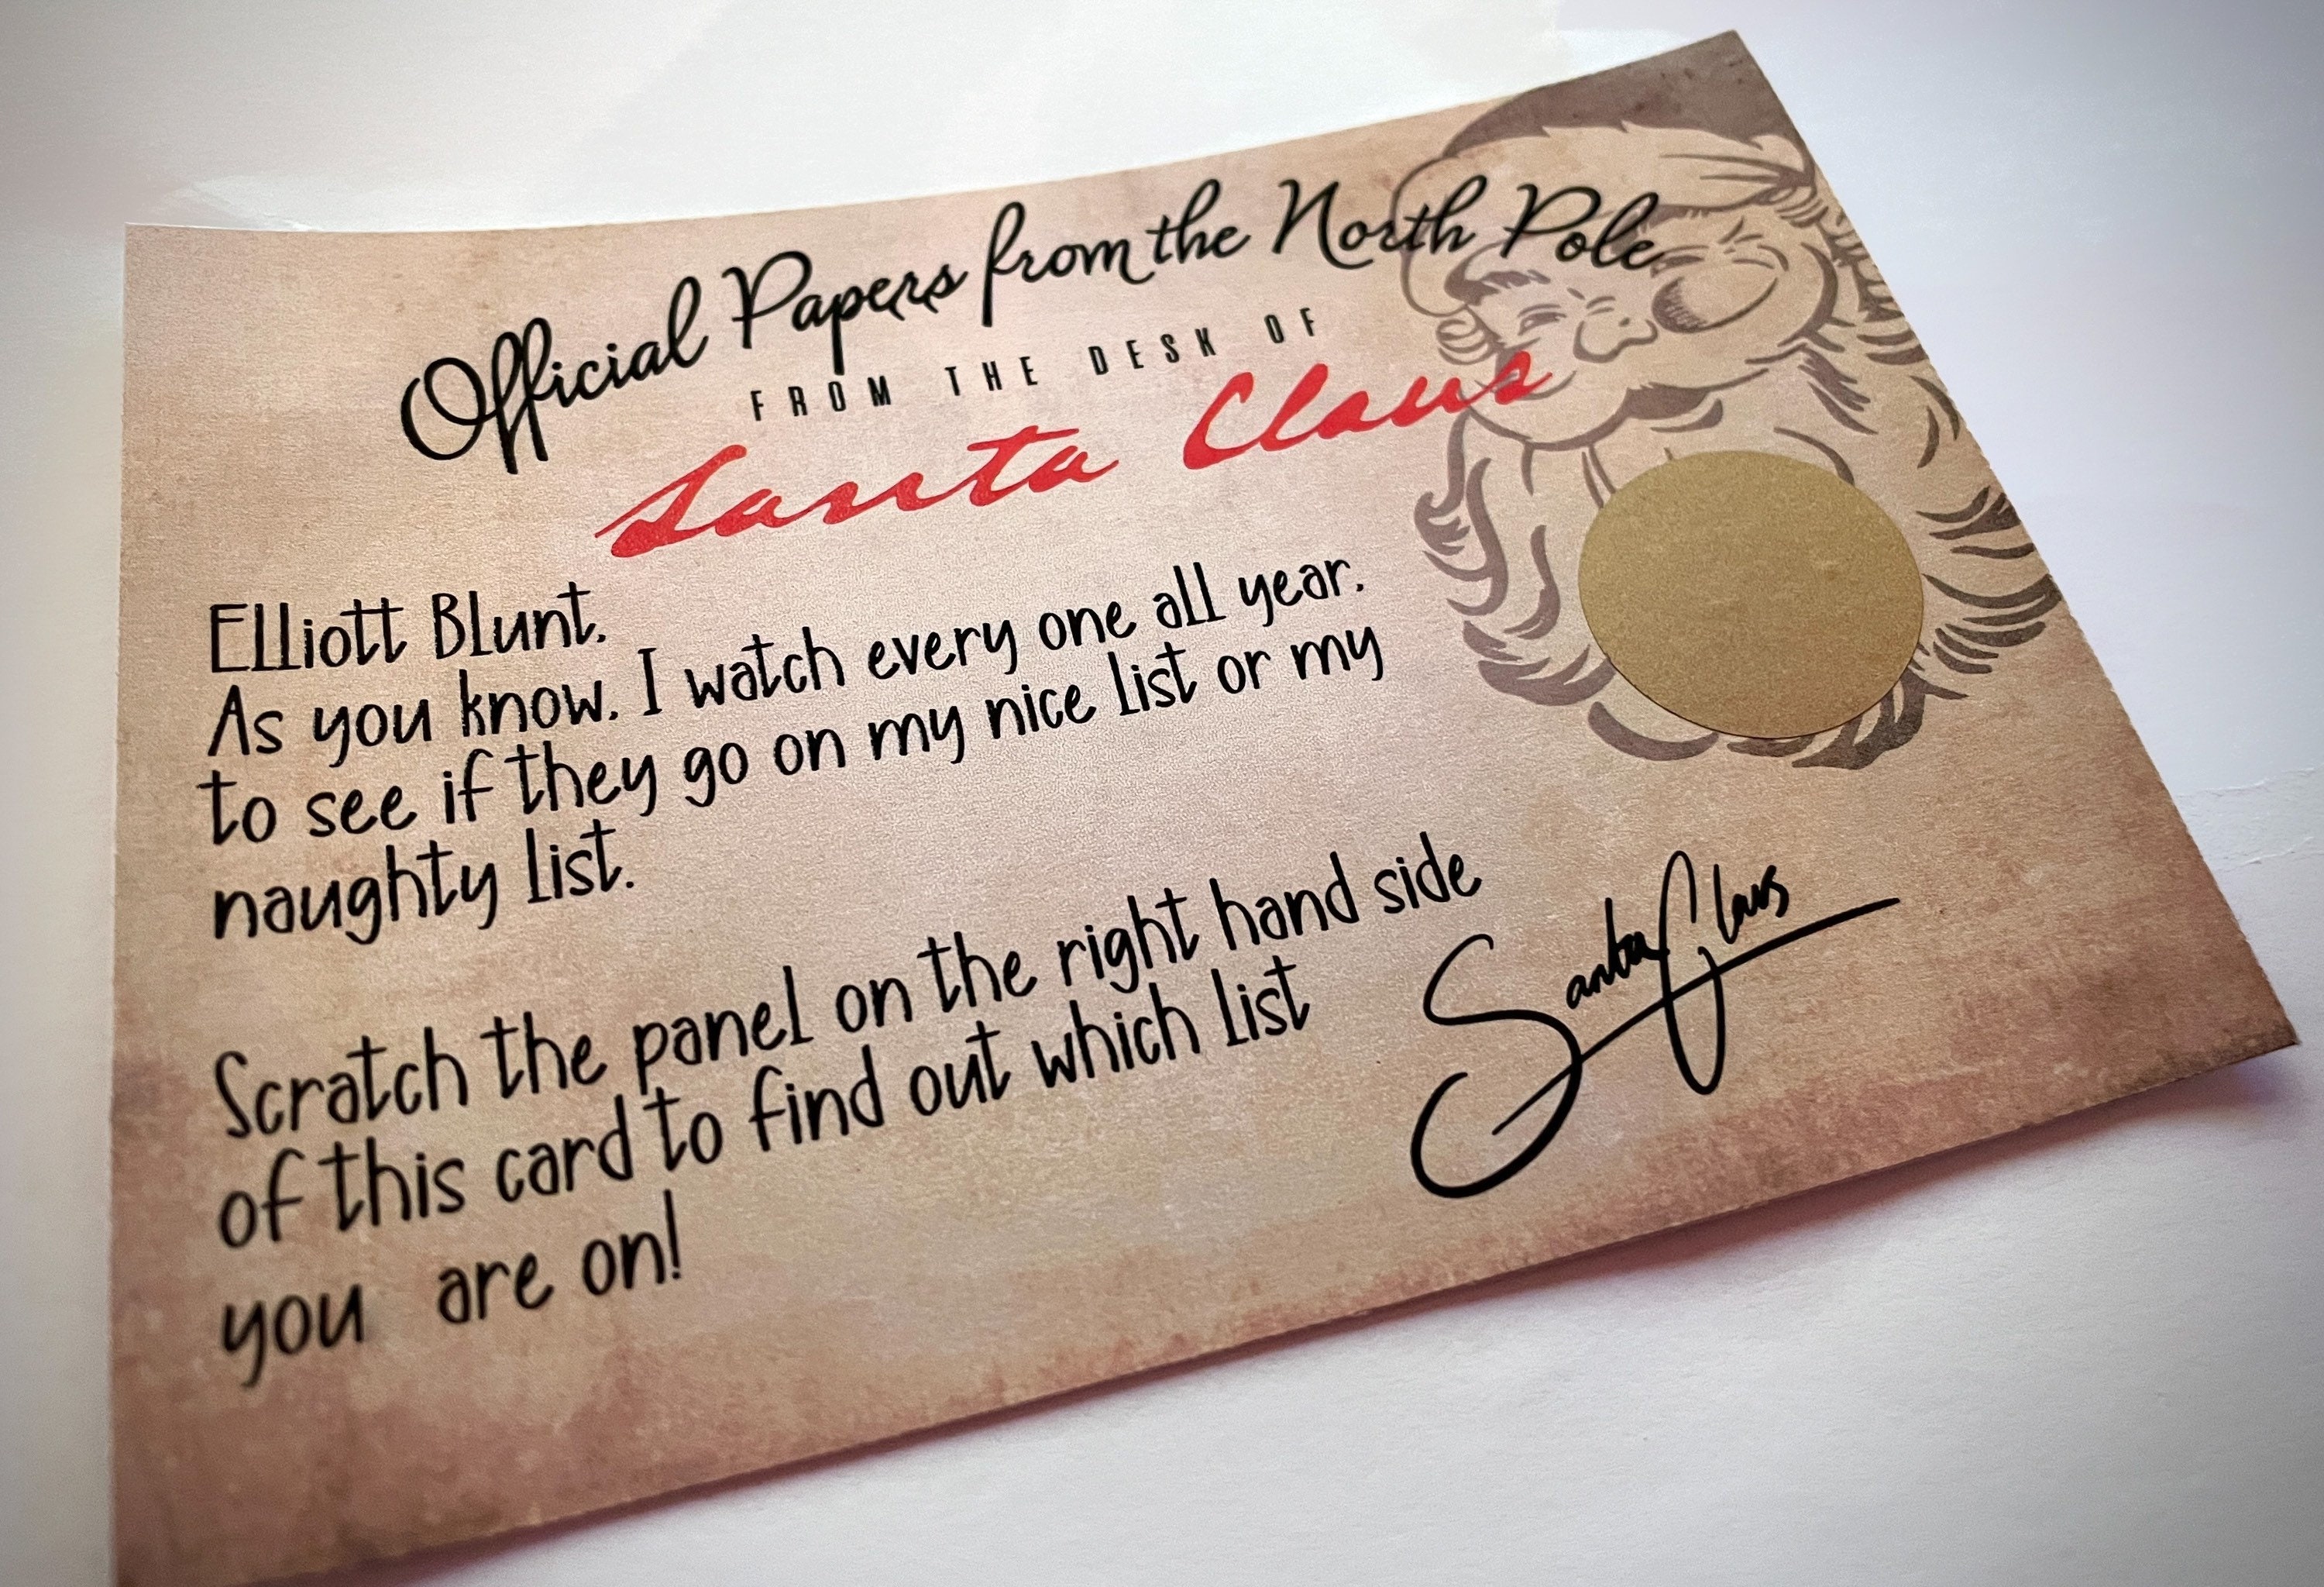 Official Papers from the North Pole
FROM THE DESK OF
Santa Claus
Elliott Blunt,
As you know, I watch every one all year,
to see if they go on my nice list or my
naughty list.
Scratch the panel on the right hand side
of this card to find out which list
you are on!
Santa Claus